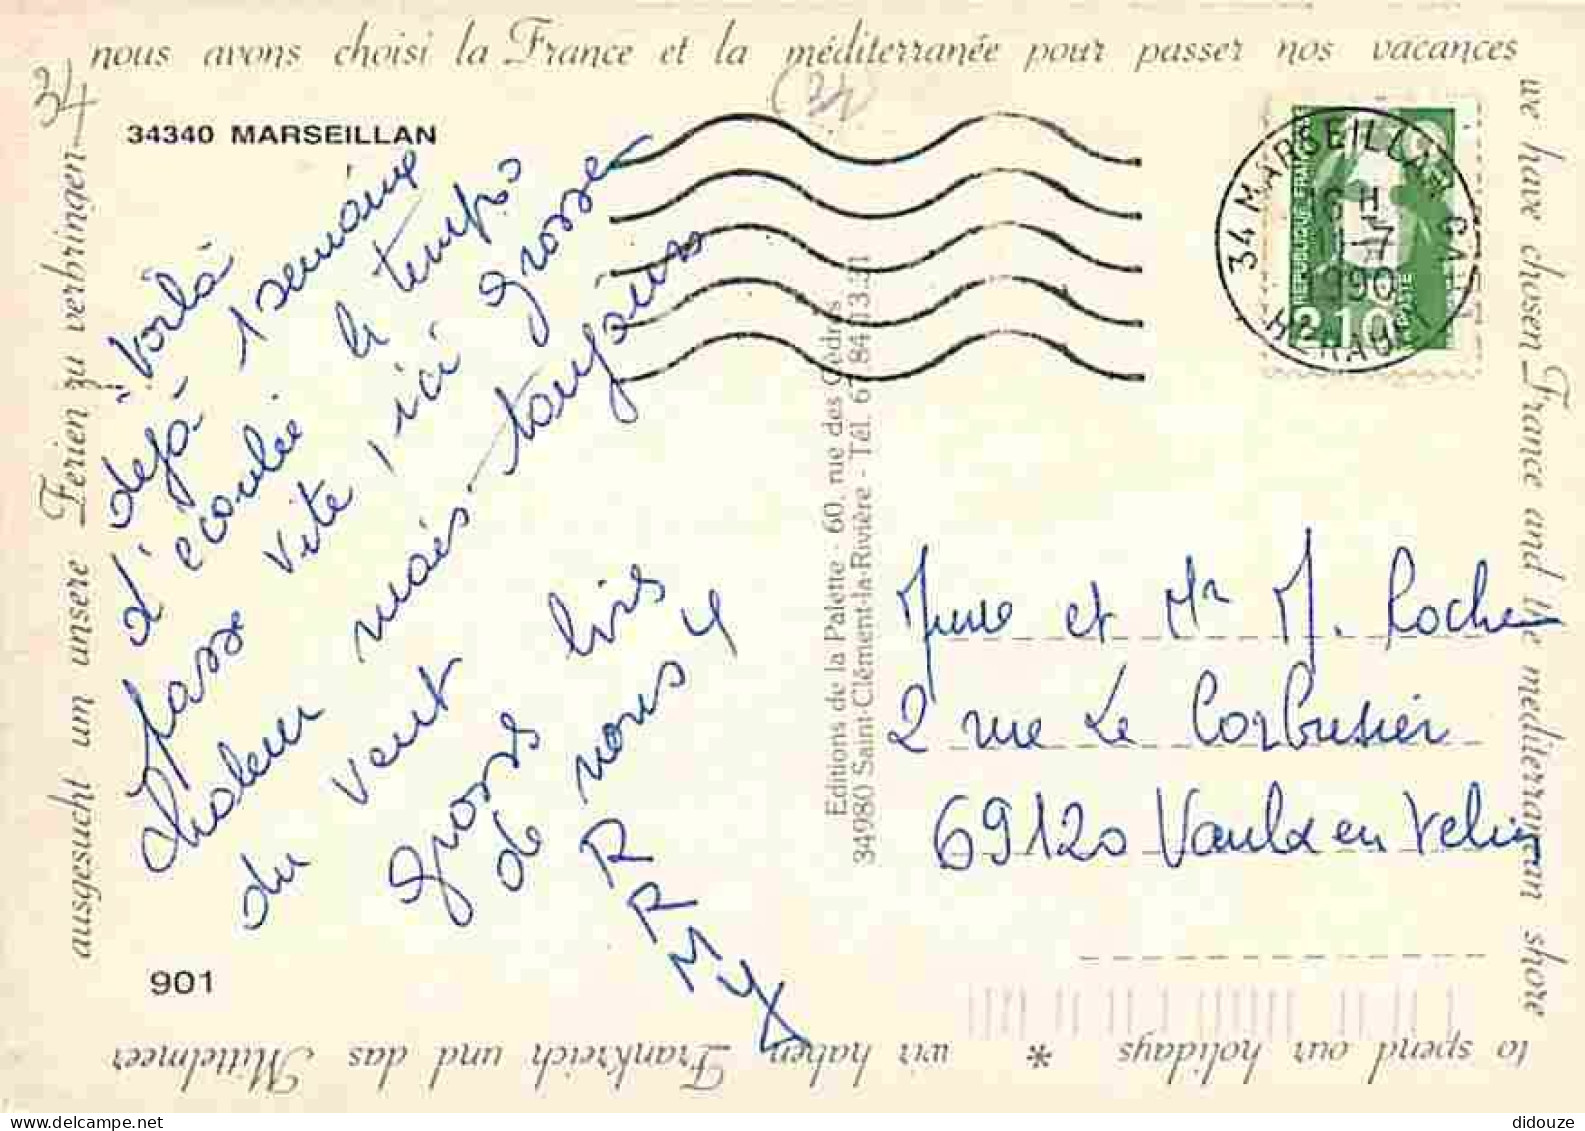 nous avons choisi la France et la méditerranée pour passer nos vacances
we have chosen France and the mediterranean shore
to spend our holidays * wir haben Frankreich und das Mittelmeer
ausgesucht um unsere Ferien zu verbringen
34
(34)
34340 MARSEILLAN
Voilà
déjà 1 semaine
d'écoulée le temps
passe vite, ici grosse
chaleur mais toujours
du vent
grosses bises
de nous 4
R
R
M
Y
901
Editions de la Palette - 60, rue des Cèdres
34980 Saint-Clément-la-Rivière - Tél. 67.84.13.51
34 MARSEILLAN
HERAULT
16 H
1990
REPUBLIQUE FRANÇAISE
2,10
LA POSTE
Mme et Mr M. Rocher
2 rue Le Corbusier
69120 Vaulx en Velin
didouze